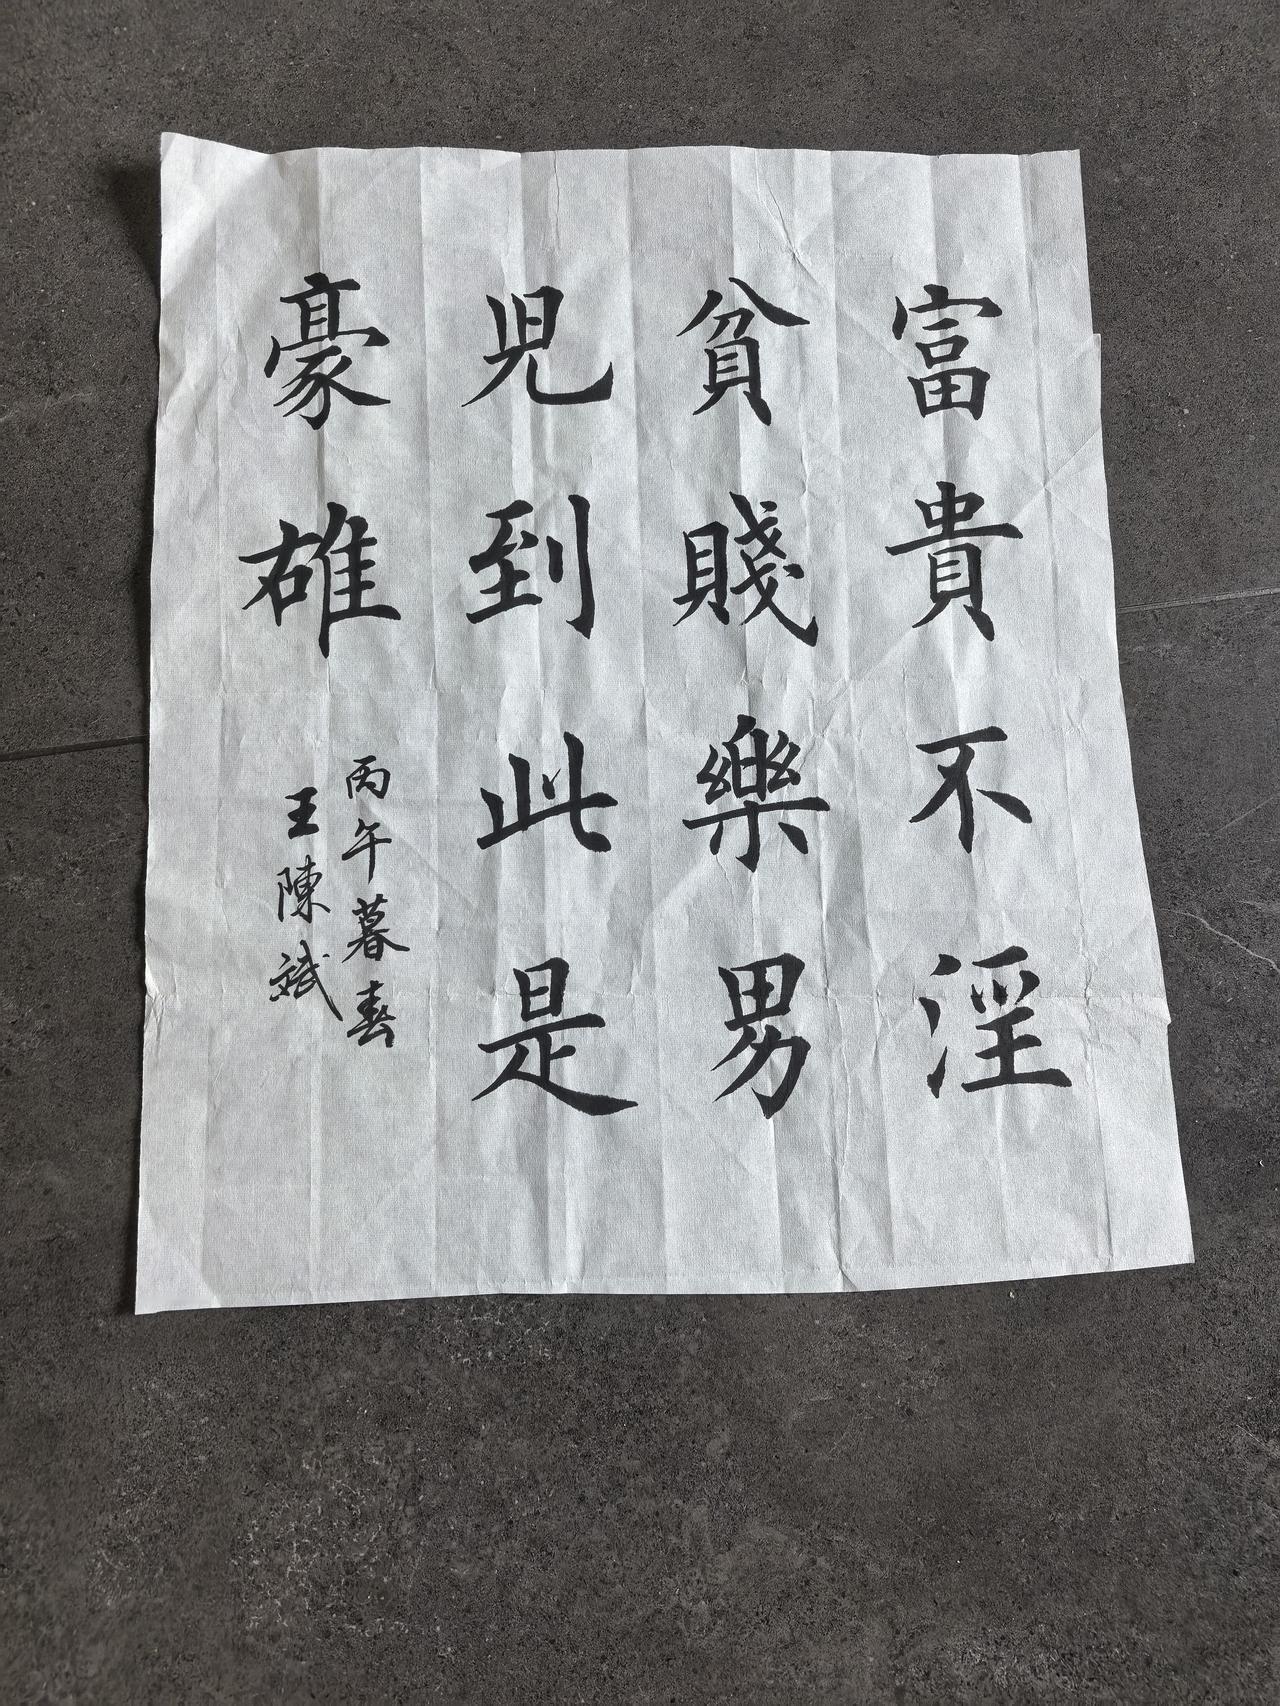 富貴不淫
貧賤樂男
児到此是
豪雄
丙午暮春
王陳斌